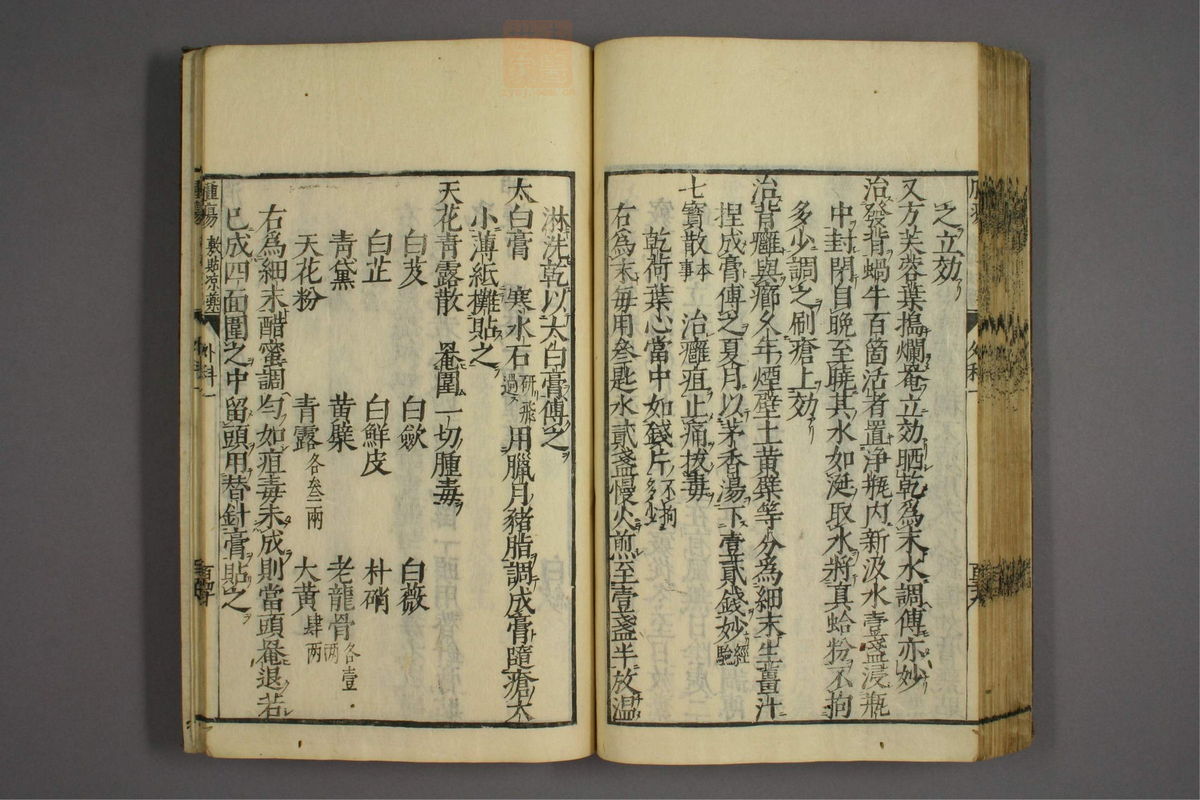 之立効
又方芙蓉葉搗爛菴立効晒乾為末水調傅亦妙
治發背蝸牛百箇活者置浄瓶内新汲水壹盞浸瓶
中封閉自晩至曉其水如涎取水將真蛤粉不拘
多少調之刷瘡上効
治背癰與癤久年煙壁土黄蘗等分為細末生薑汁
捏成膏傅之夏月以茅香湯下壹貳錢妙經驗
七寳散本事 治癰疽止痛拔毒
乾荷葉心當中如錢片不拘多少
右為末每用叄匙水貳盞慢火煎至壹盞半放温
淋洗乾以太白膏傅之
太白膏 寒水石研飛過 用臘月豬脂調成膏隨瘡大
小薄紙攤貼之
天花青露散 菴圍一切腫毒
白芨 白歛 白薇
白芷 白鮮皮 朴硝
青黛 黄蘗 老龍骨各壹兩
天花粉 青露各叄兩 大黄肆两
右為細末醋蜜調勻如疽毒未成則當頭菴退若
已成四面圍之中留頭用替針膏貼之
腫瘍 敷貼凉藥 外科一